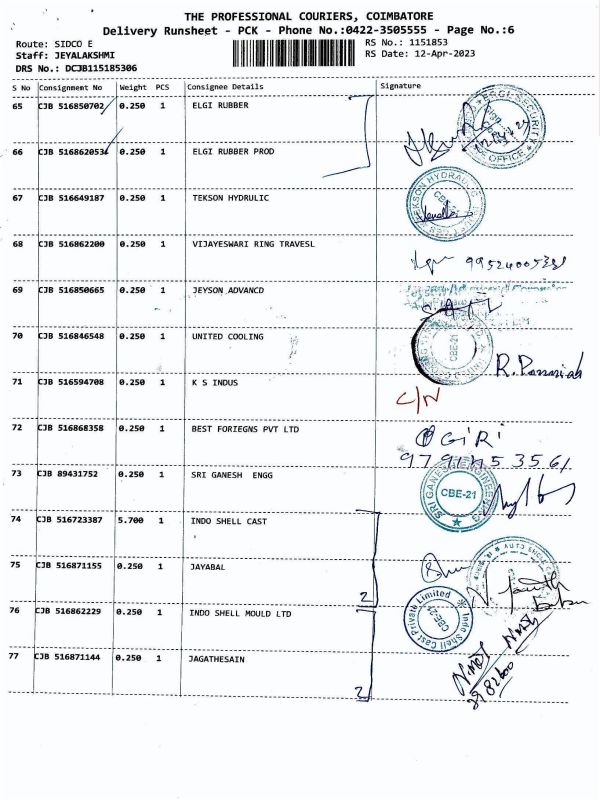 THE PROFESSIONAL COURIERS, COIMBATORE
Delivery Runsheet - PCK - Phone No.:0422-3505555 - Page No.:6
Route: SIDCO E RS No.: 1151853
Staff: JEYALAKSHMI RS Date: 12-Apr-2023
DRS No.: DCJB115185306
S No Consignment No Weight PCS Consignee Details Signature
65 CJB 516850702 0.250 1 ELGI RUBBER
66 CJB 516862053 0.250 1 ELGI RUBBER PROD
67 CJB 516649187 0.250 1 TEKSON HYDRULIC
68 CJB 516862200 0.250 1 VIJAYESWARI RING TRAVESL
69 CJB 516850665 0.250 1 JEYSON ADVANCD
70 CJB 516846548 0.250 1 UNITED COOLING
CBE-21
71 CJB 516594708 0.250 1 K S INDUS
C/N
72 CJB 516868358 0.250 1 BEST FORIEGNS PVT LTD
GiRi
73 CJB 89431752 0.250 1 SRI GANESH ENGG
CBE-21
74 CJB 516723387 5.700 1 INDO SHELL CAST
75 CJB 516871155 0.250 1 JAYABAL
2
76 CJB 516862229 0.250 1 INDO SHELL MOULD LTD
Indo Shell Cast Private Limited
77 CJB 516871144 0.250 1 JAGATHESAIN
2